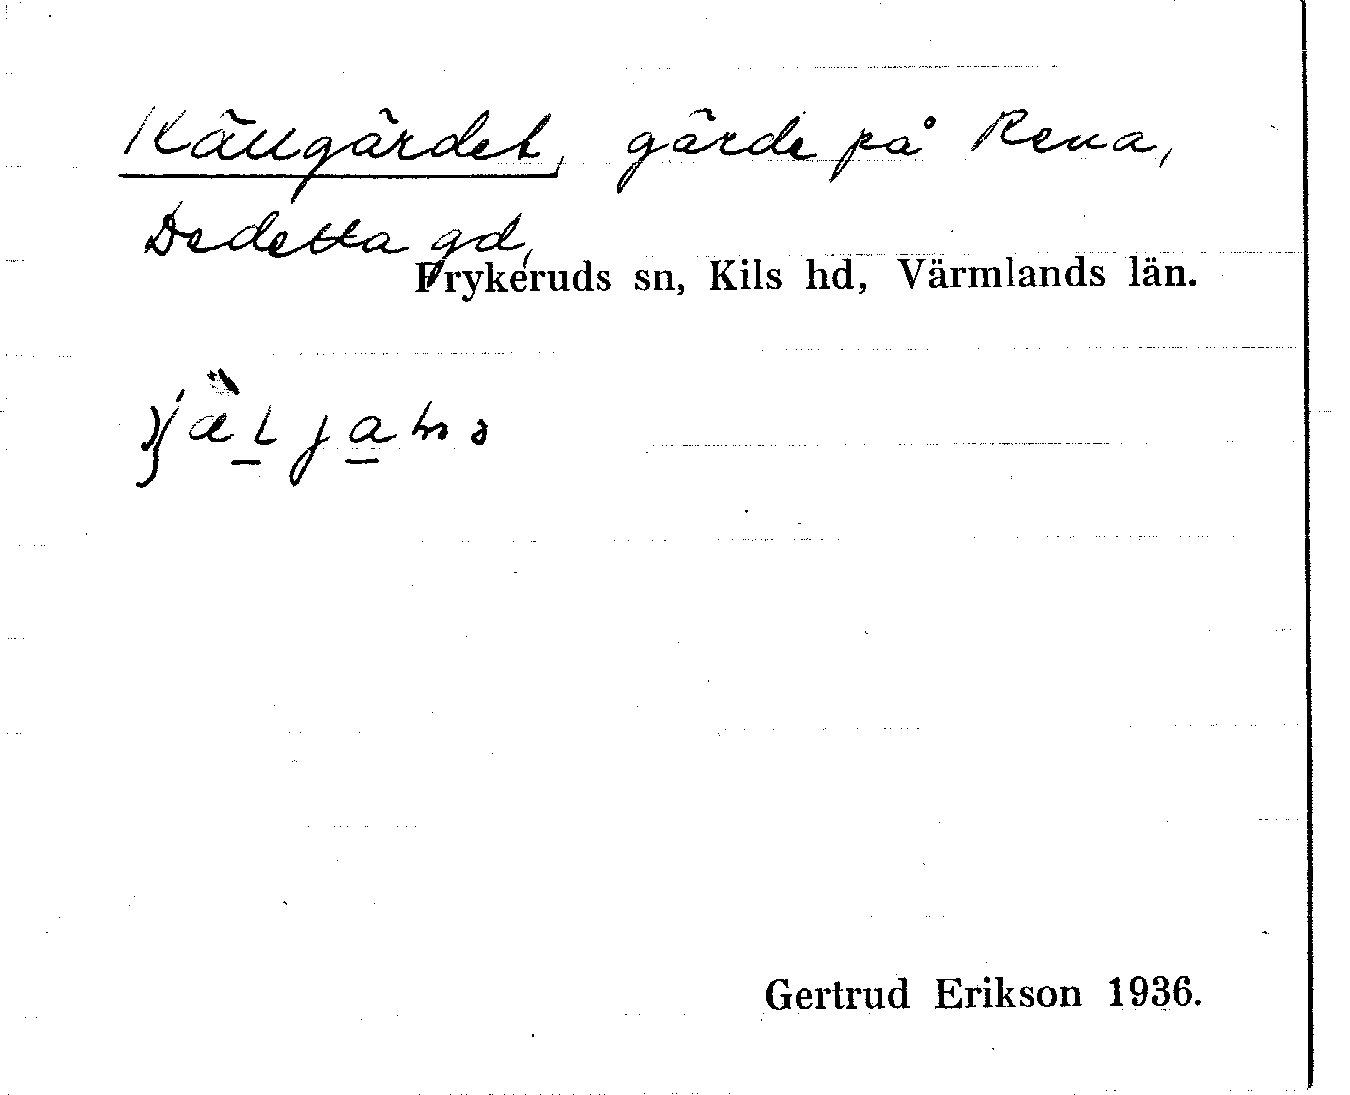 Källgärdet, gärde på Rena,
Dedetta gd,
Frykeruds sn, Kils hd, Värmlands län.
Gertrud Erikson 1936.